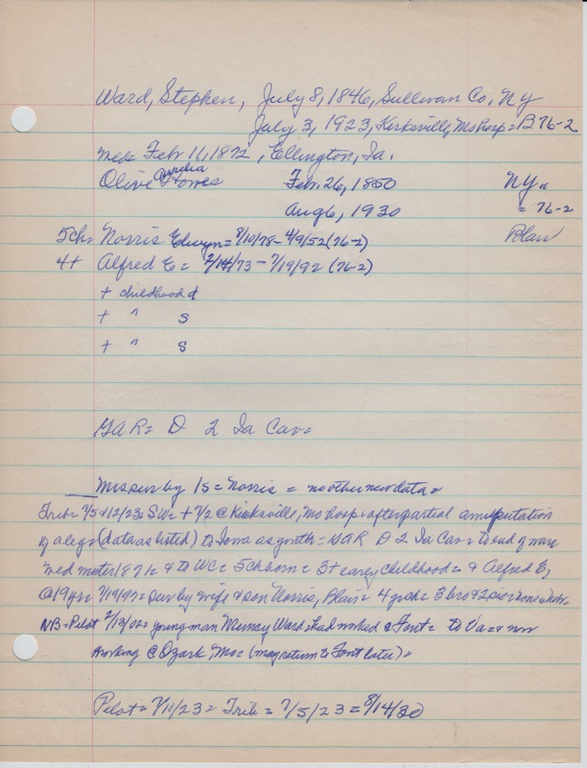 Ward, Stephen, July 8, 1846, Sullivan Co, NY
July 3, 1923, Kirksville, Mo hosp = B 76-2
med = Febr 11, 1872, Ellington, Ia.
Aurelia
Olive Howes Febr. 26, 1850 NY =
Aug 6, 1930 = 76-2
5ch = Norris Edwyn = 8/10/78 - 4/9/52 (76-2) Blair
4+ Alfred E = 2/14/73 - 7/19/92 (76-2)
+ childhood d
+ " s
+ " s
GAR = D 2 Ia Cav =
Mrs sur by 1s = Norris = no other new data =
Trib = 7/5 & 12/23 = SW = + 7/2 @ Kirksville, Mo hosp = after partial amputation
of a leg = (data as listed) to Iowa as youth = GAR D 2 Ia Cav = to end of war =
med 1872 & to WC = 5ch born = 3+ early childhood = & Alfred E,
@ 19 yrs 7/19/92 = sur by wife & son Norris, Blair = 4 gch = 3 bro & 2 sis =
NB = Pilot 2/13/02 = young man Murney Ward = had worked @ Font = to Va = & now
working @ Ozark, Mo = (may return to Font later) =
Pilot = 7/11/23 = Trib = 7/5/23 = 8/14/30